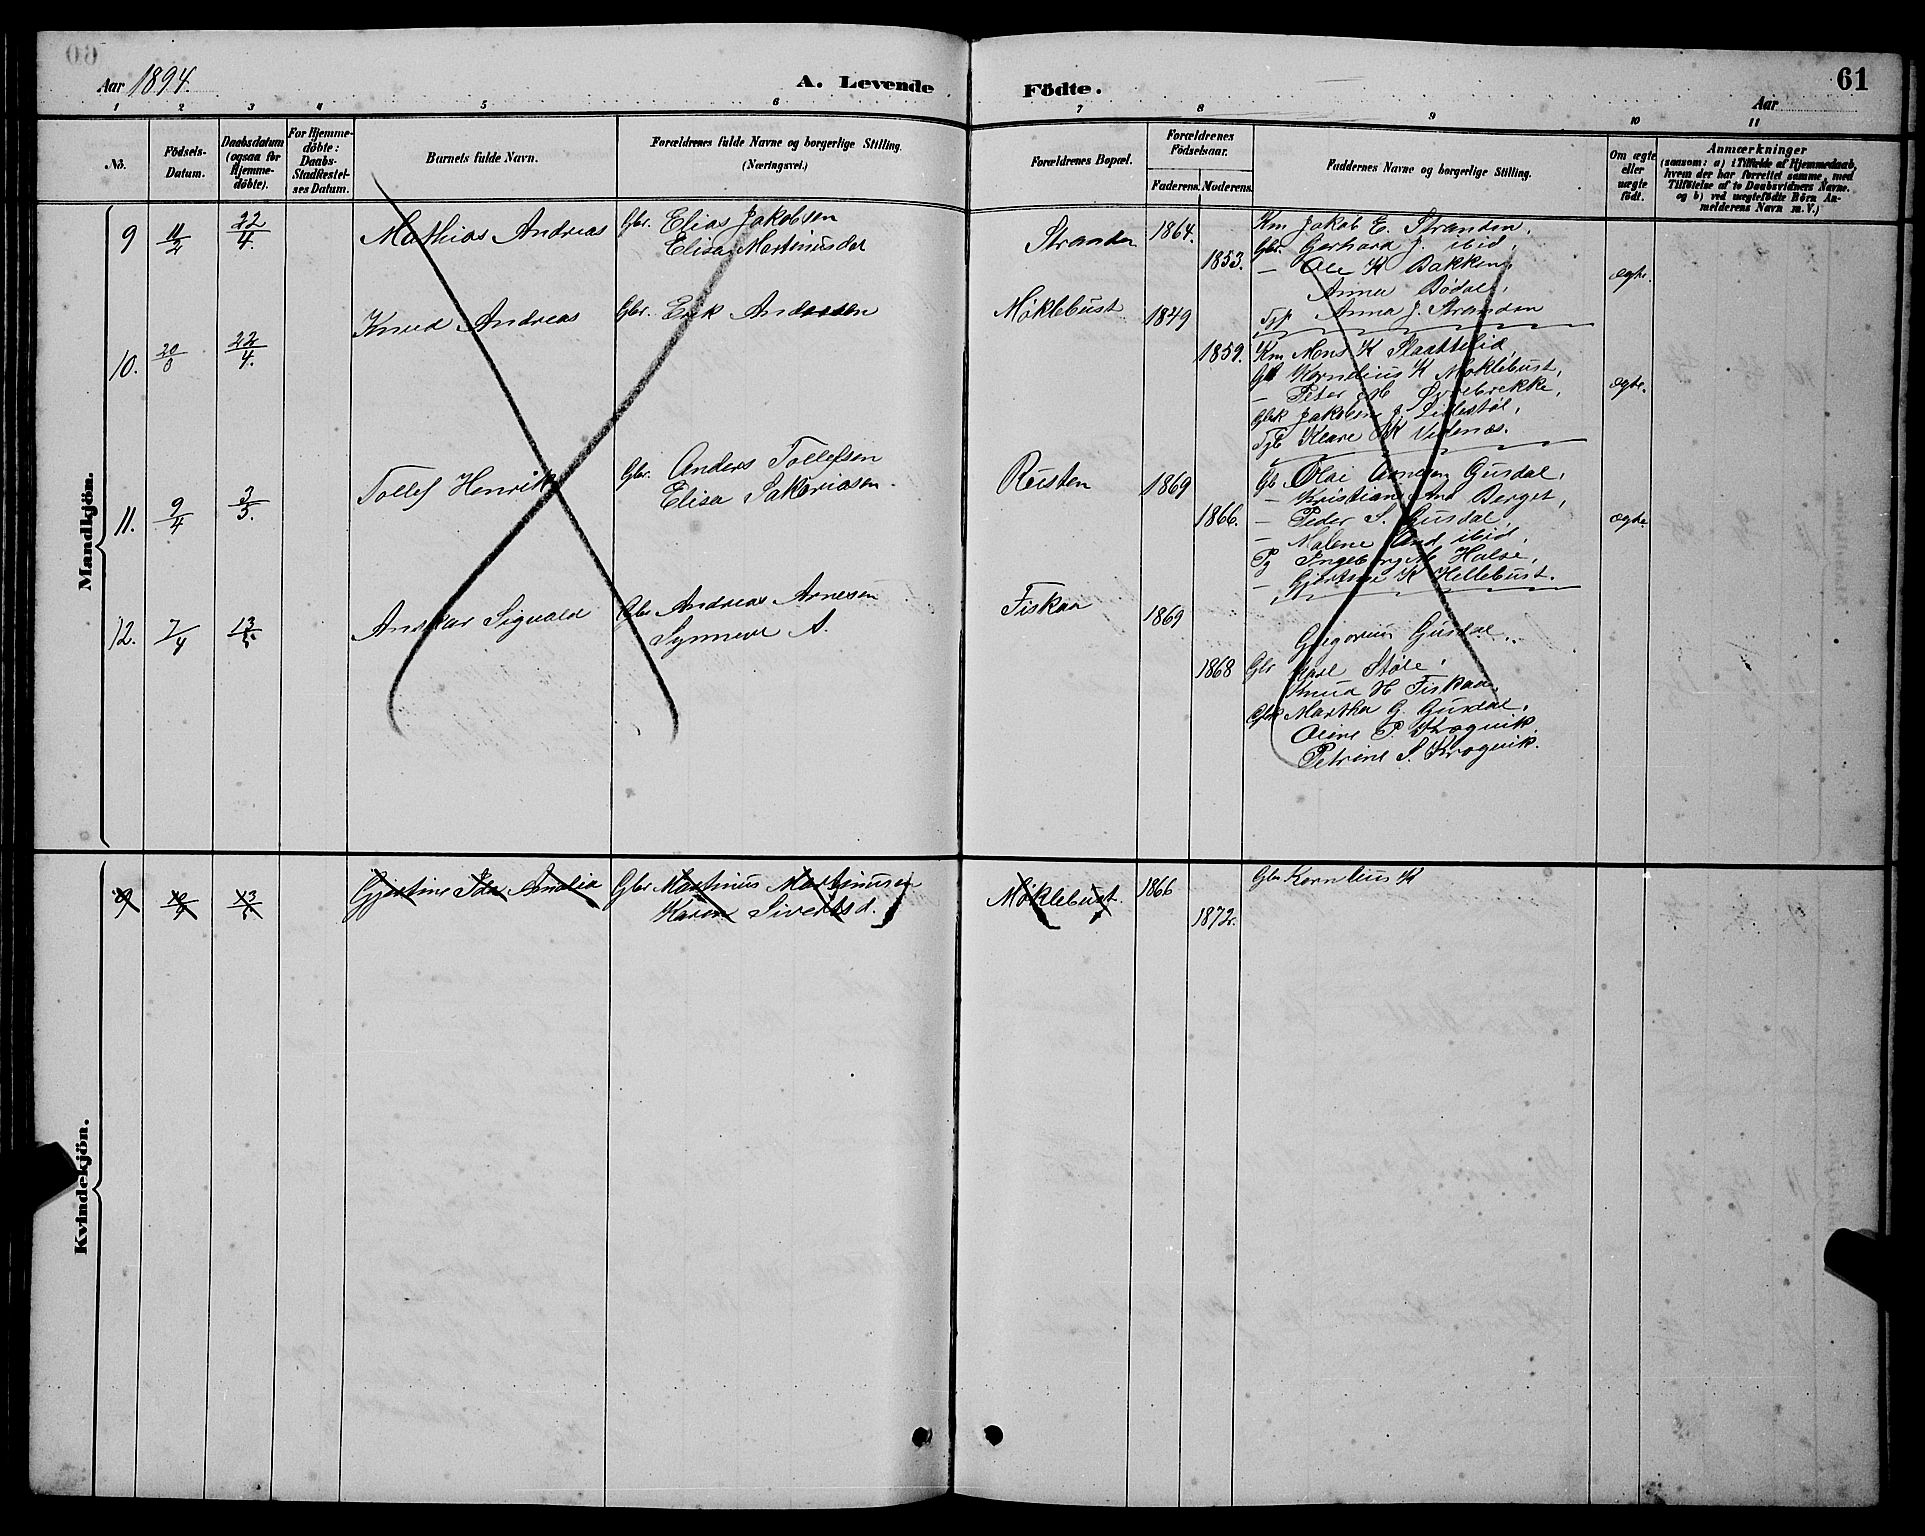 Aar 1894.
A. Levende Födte.
61
Aar
1 2 3 4 5 6 7 8 9 10 11
No.
Födsels-Datum.
Daabsdatum (ogsaa for Hjemme-döbte).
For Hjemme-döbte: Daabs-Stadfæstel-ses Datum.
Barnets fulde Navn.
Forældrenes fulde Navne og borgerlige Stilling.
(Næringsvei.)
Forældrenes Bopæl.
Forældrenes Födselsaar.
Faderens. Moderens.
Faddernes Navne og borgerlige Stilling.
Om ægte eller uægte födt.
Anmærkninger
(saasom: a) i Tilfælde af Hjemmedaab,
hvem der har forrettet samme, med
Tilföielse af to Daabsvidners Navne.
og b) ved uægtefödte Börn An-
melderens Navn m. V.)
Mandkjön.
9 11/2 22/4. Mathias Andreas Gbr. Elias Jakobsen
Elisa Martinusdar
Stranden 1864. 1853.
Km Jakob E. Stranden,
Gbr. Gerhard J. ibid,
— Ole K Bakken,
Anna Bødal,
Anna J. Stranden
ægte.
10. 20/3 22/4. Knud Andreas Gbr. Erik Andersen
Møklebust 1849 1859.
Km Mons K Slaattelid,
Gb Kornelius K Møklebust,
— Peter M
Gbk Jakobine J.
Klare K Videnæs.
ægte.
11. 9/4 3/5. Tollef Henrik Gbr. Anders Tollefsen
Elisa Sakariasen.
Rusten 1869 1866.
Gb Olai Gusdal,
— Kristian And Berget,
— Peder S. Gusdal,
— Malene And ibid,
Pg Ingeborg M Halse,
— K Hellebust.
ægte
12. 7/4 13/5. Anskar Sigvald Gbr Andreas Arnesen
Synneve A.
Fiskaa 1869 1868
Grigorius Gusdal,
Gbr Karl Støle,
Knud H Fiskaa,
Gbk Martha G. Gusdal,
Oline P. Krogvik
Petrine S. Krogvik.
Kvindekjön.
9 13/5 Gjertine Ida Amalia Gbr Martinus Martinusen
Karen Sivertsd.
Møklebust. 1866 1872.
Gbr Kornelius K